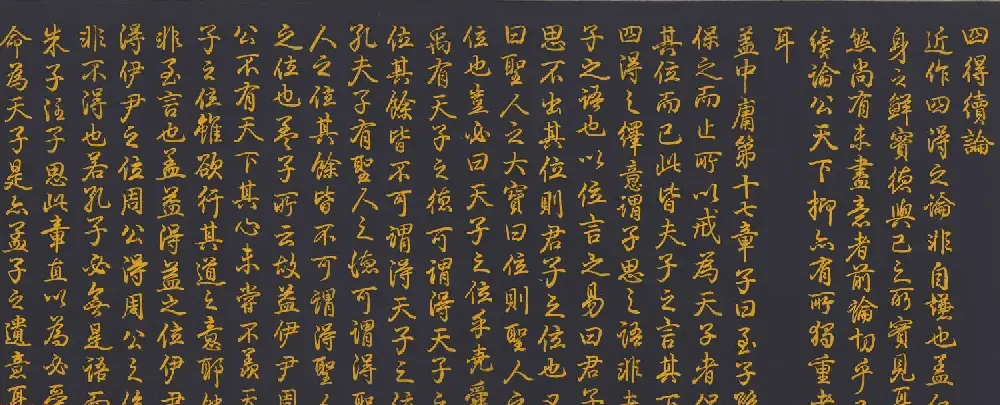 四得續論
近作四得之論非自也盖
身之鮮實德與已之所實見耳
然尚有未盡意者前論切乎
續論公天下抑亦有所獨重
耳
盖中庸第十七章子曰至子孫
保之而止所以戒為天子者保
其位而已此皆夫子之言其下
四得之繹意謂子思之語非夫
子之語也以位言之易曰君子
思不出其位則君子之位也又
曰聖人之大寶曰位則聖人之
位也豈必曰天子之位乎堯舜
禹有天子之德可謂得天子之
位其餘皆不可謂得天子之位
孔夫子有聖人之德可謂得聖
人之位其餘皆不可謂得聖人
之位也孟子所云故益伊尹周
公不有天下其心未嘗不羨天
子之位雖欲行其道之意耶然
非至言也盖益得益之位伊尹
得伊尹之位周公得周公之位
非不得也若孔子必無是語而
朱子注子思此章直以為必受
命為天子是亦孟子之遺意耳